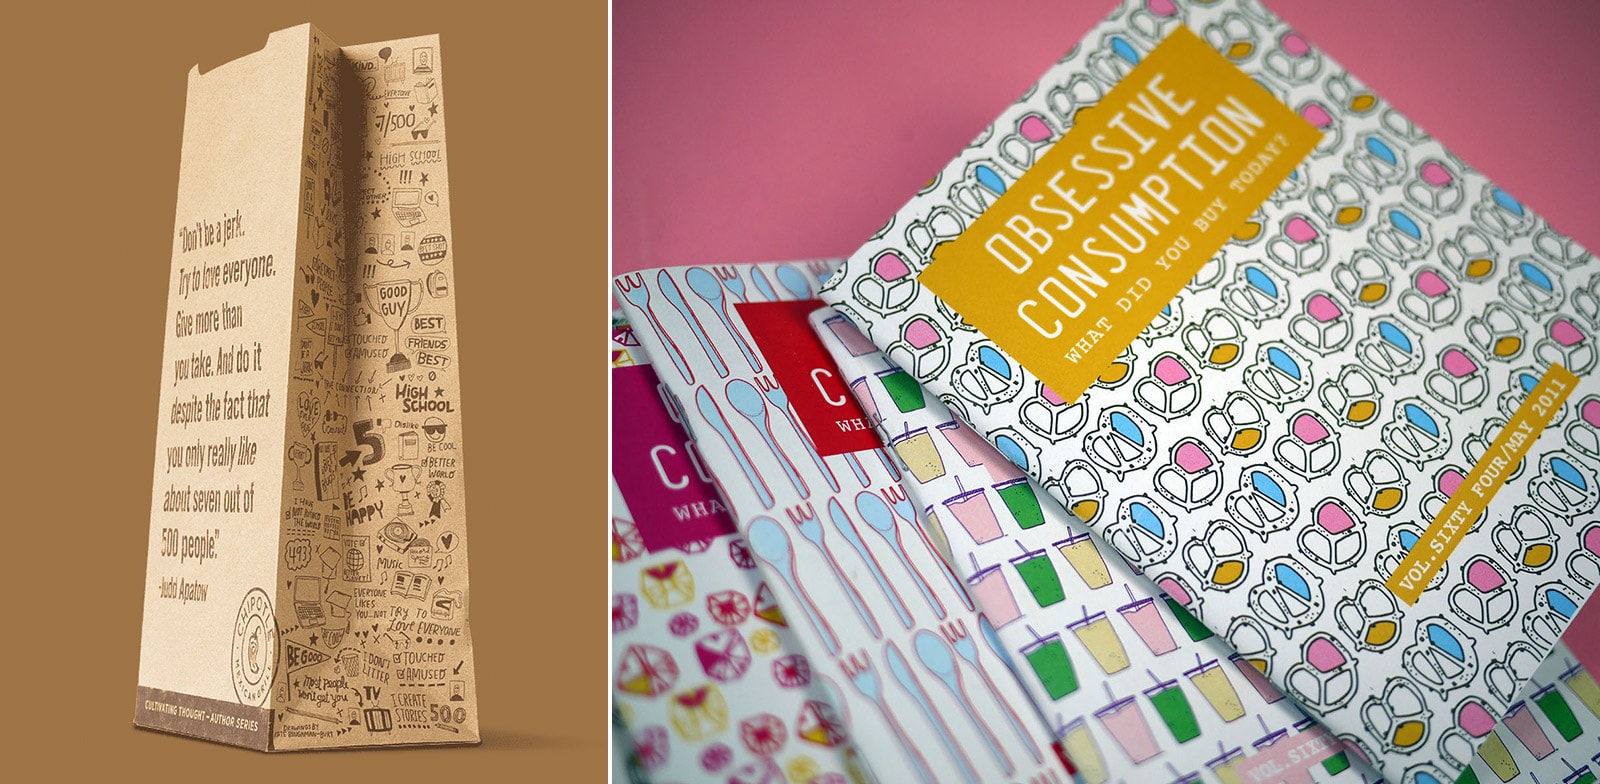 "Don't be a jerk.
Try to love everyone.
Give more than
you take. And do it
despite the fact that
you only really like
about seven out of
500 people."
-Judd Apatow
CHIPOTLE
MEXICAN GRILL
CULTIVATING THOUGHT – AUTHOR SERIES
KIND.
EVERYONE
7/500
HIGH SCHOOL
!!!
BEST SHOT
!!!
GOOD
GUY
BEST
FRIENDS
BEST
TOUCHED
AMUSED
CONNECTION
HIGH
SCHOOL
LOVE
5
Dislike
BE COOL
BETTER
WORLD
BE
HAPPY
I HAVE
NOT RUINED
THE WORLD
493
MUSIC
EVERYONE
LIKES
YOU...NOT
TRY TO
Love EVERYONE
BE GOOD
I DON'T
LITTER
TOUCHED
AMUSED
Most People
won't get you
TV
I CREATE
STORIES
500
DRAWINGS BY
KATE BINGAMAN-BURT
OBSESSIVE
CONSUMPTION
WHAT DID YOU BUY TODAY?
VOL.SIXTY FOUR/MAY 2011
C
WH
CO
WHA
VOL.SIXT